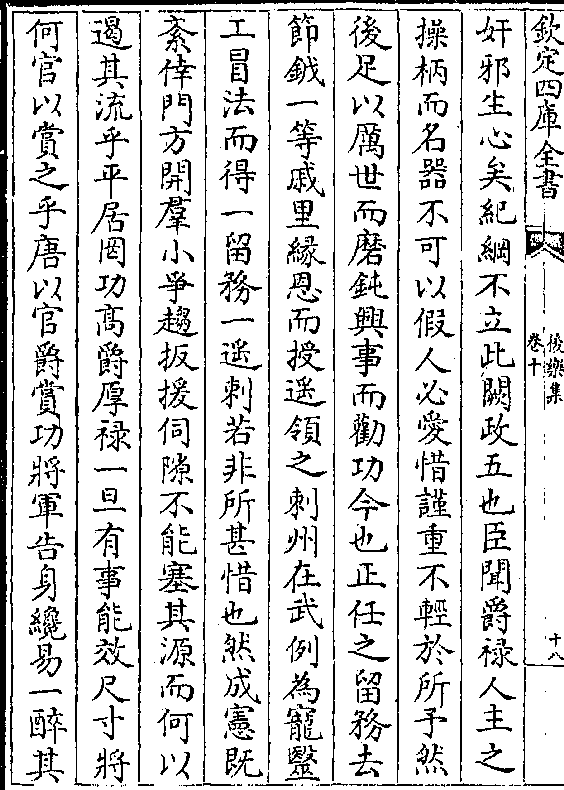 欽定四庫全書
後樂集
卷十
十八
奸邪生心矣紀綱不立此闕政五也臣聞爵禄人主之
操柄而名器不可以假人必愛惜謹重不輕於所予然
後足以厲世而磨鈍興事而勸功今也正任之留務去
節鉞一等戚里緣恩而授遥領之刺州在武例為寵醫
工冒法而得一留務一遥刺若非所甚惜也然成憲既
紊倖門方開羣小爭趨扳援伺隙不能塞其源而何以
遏其流乎平居罔功高爵厚禄一旦有事能效尺寸將
何官以賞之乎唐以官爵賞功將軍告身纔易一醉其